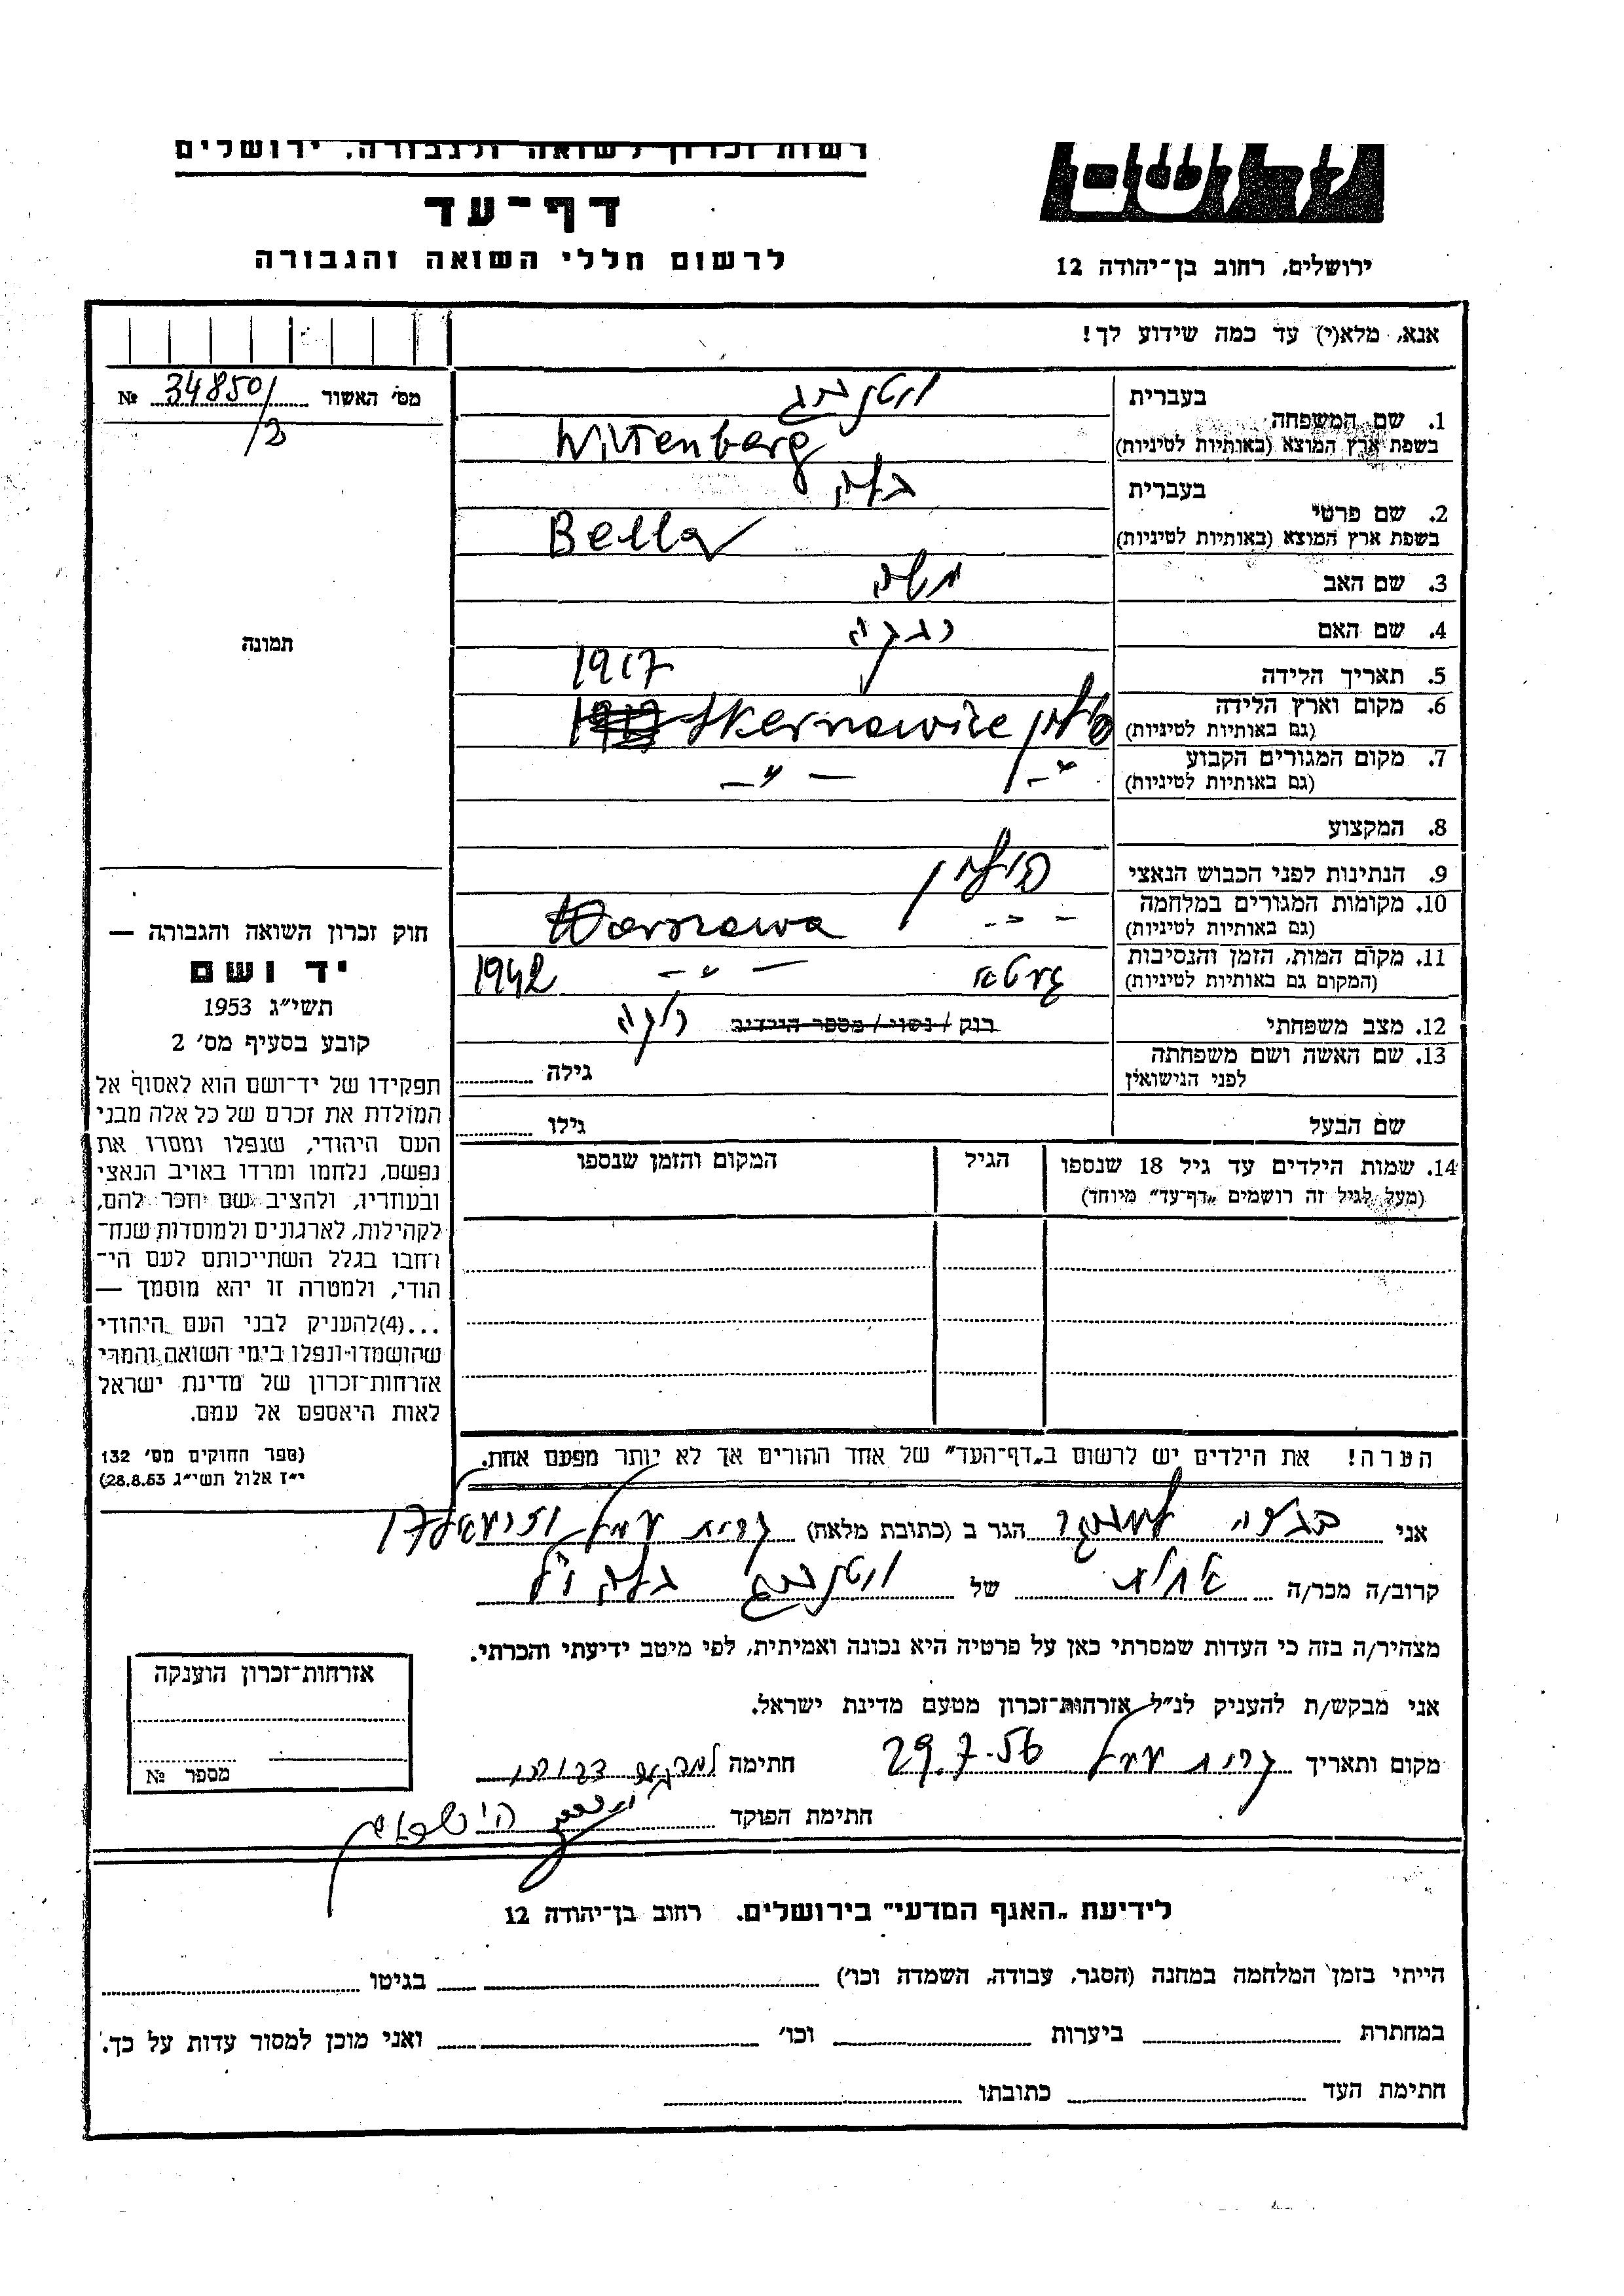 רשות זכרון לשואה ולגבורה, ירושלים
דף-עד
לרשום חללי השואה והגבורה
ירושלים, רחוב בן-יהודה 12
אנא, מלא(י) עד כמה שידוע לך!
מס' האשור 34850/3 №
1. שם המשפחה בעברית וויטנברג
בשפת ארץ המוצא (באותיות לטיניות) Wittenberg
2. שם פרטי בעברית בלה
בשפת ארץ המוצא (באותיות לטיניות) Bella
3. שם האב משה
4. שם האם רבקה
5. תאריך הלידה 1917
6. מקום וארץ הלידה פולין Skernewice
(גם באותיות לטיניות)
7. מקום המגורים הקבוע -"- -"-
(גם באותיות לטיניות)
8. המקצוע
9. הנתינות לפני הכבוש הנאצי פולין
10. מקומות המגורים במלחמה -"- Warszawa
(גם באותיות לטיניות)
11. מקום המות, הזמן והנסיבות גטו -"- 1942
(המקום גם באותיות לטיניות)
12. מצב משפחתי רוק / נשוי / מספר הילדים רוקה
13. שם האשה ושם משפחתה
לפני הנישואין גילה
שם הבעל גילו
14. שמות הילדים עד גיל 18 שנספו הגיל המקום והזמן שנספו
(מעל לגיל זה רושמים „דף-עד" מיוחד)
הערה! את הילדים יש לרשום ב„דף-העד" של אחד ההורים אך לא יותר מפעם אחת.
תמונה
חוק זכרון השואה והגבורה —
יד ושם
תשי"ג 1953
קובע בסעיף מס' 2
תפקידו של יד-ושם הוא לאסוף אל
המולדת את זכרם של כל אלה מבני
העם היהודי, שנפלו ומסרו את
נפשם, נלחמו ומרדו באויב הנאצי
ובעוזריו, ולהציב שם וזכר להם,
לקהילות, לארגונים ולמוסדות שנח-
רחבו בגלל השתייכותם לעם הי-
הודי, ולמטרה זו יהא מוסמך —
...(4)להעניק לבני העם היהודי
שהושמדו ונפלו בימי השואה והמרי
אזרחות-זכרון של מדינת ישראל
לאות היאספם אל עמם.
(ספר החוקים מס' 132
י"ז אלול תשי"ג 28.8.53)
אני הגר ב (כתובת מלאה) קרית עמל
קרוב/ה מכר/ה אחות של וויטנברג בלה ז"ל
מצהיר/ה בזה כי העדות שמסרתי כאן על פרטיה היא נכונה ואמיתית, לפי מיטב ידיעתי והכרתי.
אני מבקש/ת להעניק לנ"ל אזרחות-זכרון מטעם מדינת ישראל.
מקום ותאריך קרית עמל 29.7.56 חתימה
חתימת הפוקד
אזרחות-זכרון הוענקה
מספר №
לידיעת „האגף המדעי" בירושלים. רחוב בן-יהודה 12
הייתי בזמן המלחמה במחנה (הסגר, עבודה, השמדה וכו') בגיטו
במחתרת ביערות וכו' ואני מוכן למסור עדות על כך.
חתימת העד כתובתו